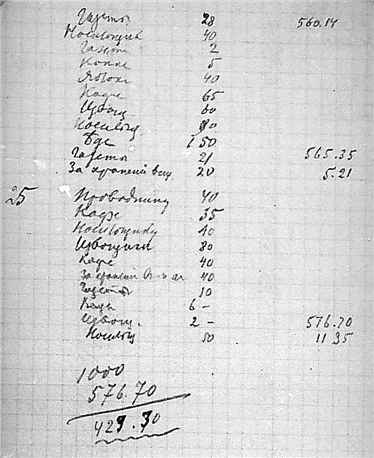 Газеты 28 560.14
Носильщик 40
Газет 2
Конке 5
Яблоки 40
Кафе 65
Извощ 60
Носильщ 40
1 50
Газеты 21 565.35
За хранений вещ 20 5.21
25 Проводнику 40
Кафе 35
Носильщику 40
Извощики 80
Кафе 40
За хранен 40
Газеты 10
6 -
Извощ. 2 - 576.70
Носильщ 50 11 35
1000
576.70
423.30